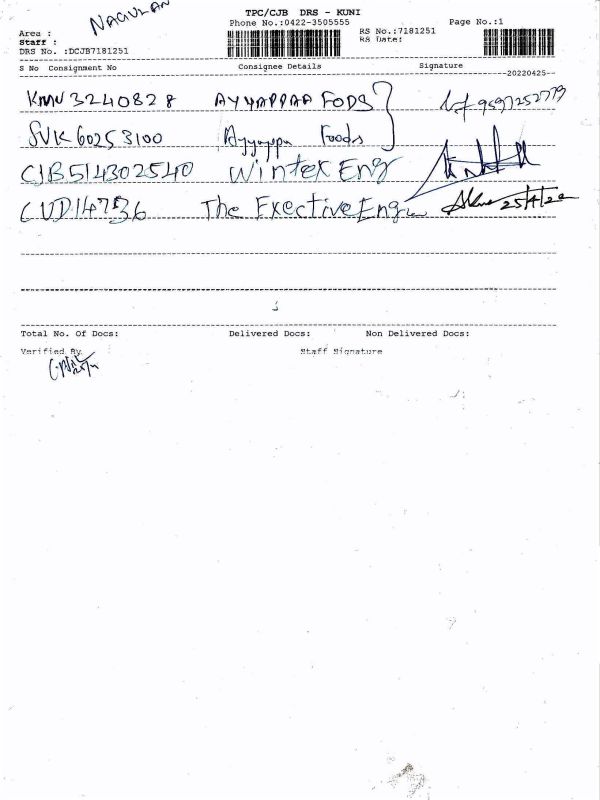 NAGULAN
TPC/CJB DRS - KUNI
Phone No.:0422-3505555
Page No.:1
Area :
Staff :
DRS No. :DCJB7181251
RS No.:7181251
RS Date:
S No Consignment No Consignee Details Signature
20220425
KMU3240828 AYYAPPAA FODS 9597252779
SVK60253100 Ayyappa Foods
CJB514302540 Wintex Eng
CUD14736 The Exective Eng 25/4/22
Total No. Of Docs: Delivered Docs: Non Delivered Docs:
Verified By Staff Signature